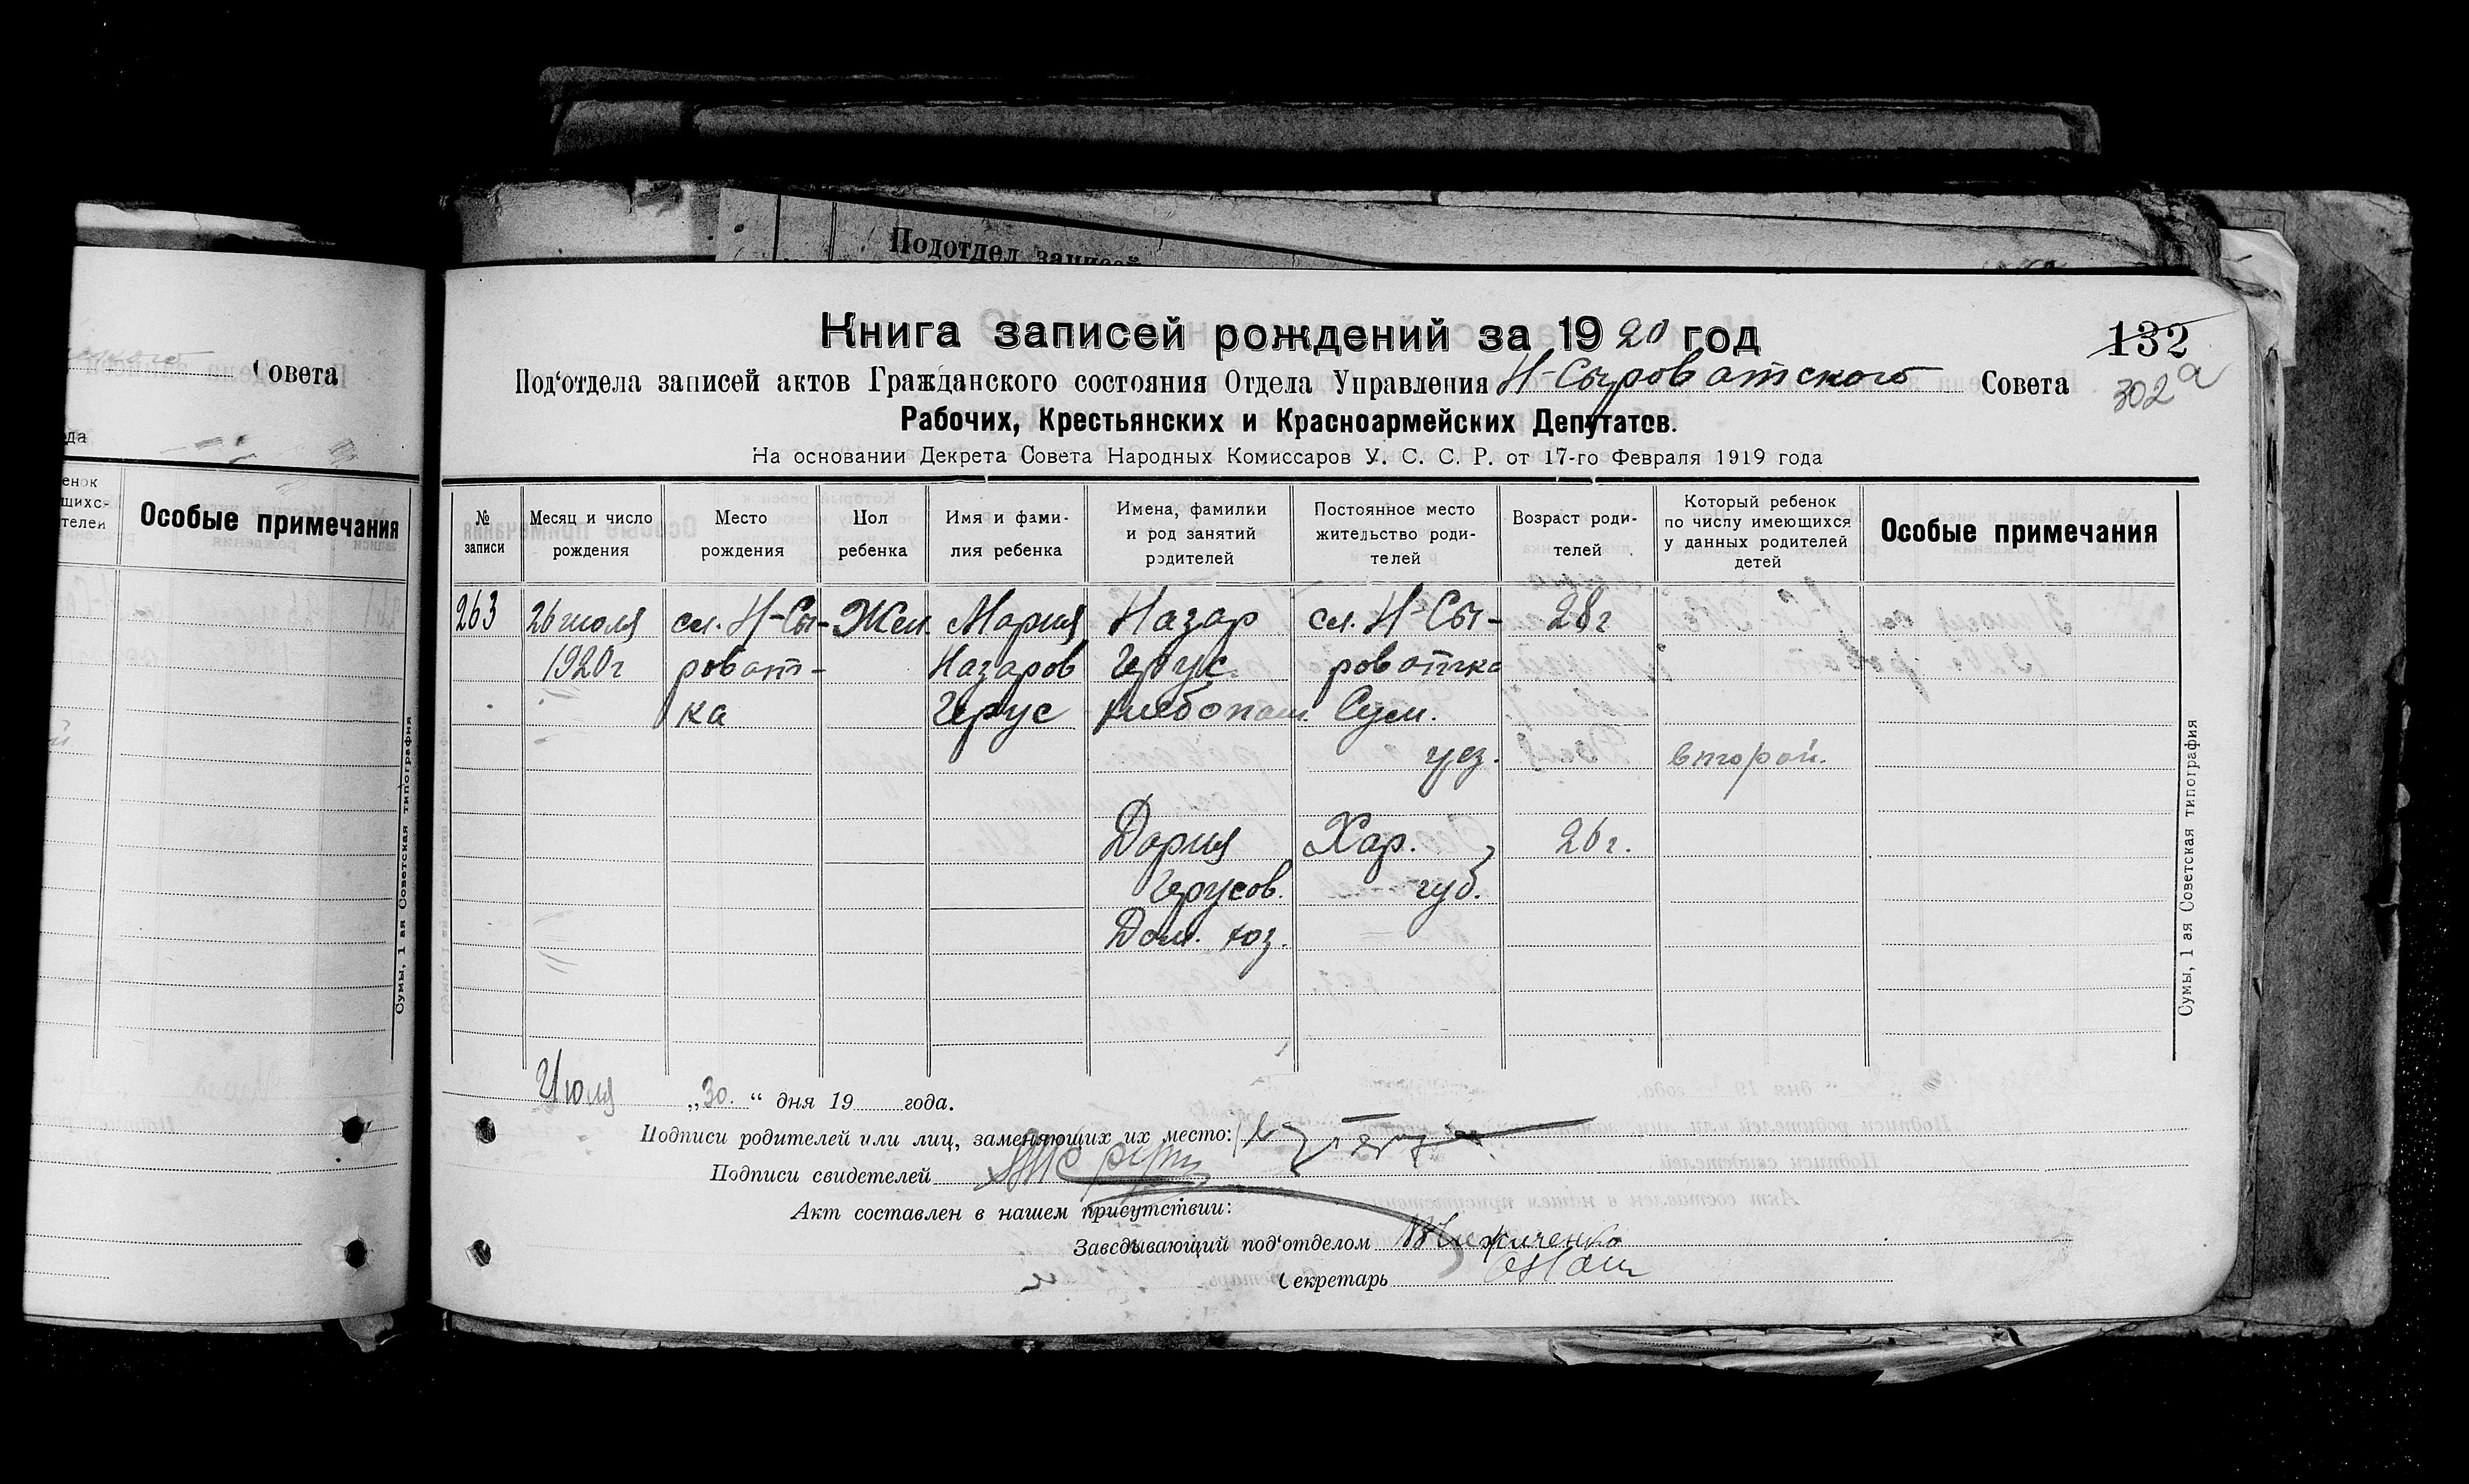 Подотдел записей
Совета
да
енок
щихс-
телей
Особые примечания
Сумы, 1 ая Советская типография
Книга записей рождений за 1920 год
132
302а
Под'отдела записей актов Гражданского состояния Отдела Управления Н-Сыроватского Совета
Рабочих, Крестьянских и Красноармейских Депутатов.
На основании Декрета Совета Народных Комиссаров У. С. С. Р. от 17-го Февраля 1919 года
№ записи
Месяц и число рождения
Место рождения
Пол ребенка
Имя и фами-лия ребенка
Имена, фамилии и род занятий родителей
Постоянное место жительство роди-телей
Возраст роди-телей
Который ребенок по числу имеющихся у данных родителей детей
Особые примечания
263 26 июля сл. Н-Сы- Жен. Мария Назар сл. Н-Сы- 28 г
1920 г роват- Назаров Герус. роватка
ка Герус хлебопаш. Сум.
уез. второй.
Дария Хар. 26 г.
Герусов. губ.
Дом. хоз.
Июля „30.“ дня 19 года.
Подписи родителей или лиц, заменяющих их место:
Подписи свидетелей
Акт составлен в нашем присутствии:
Заведывающий под'отделом
Секретарь
Сумы, 1 ая Советская типография